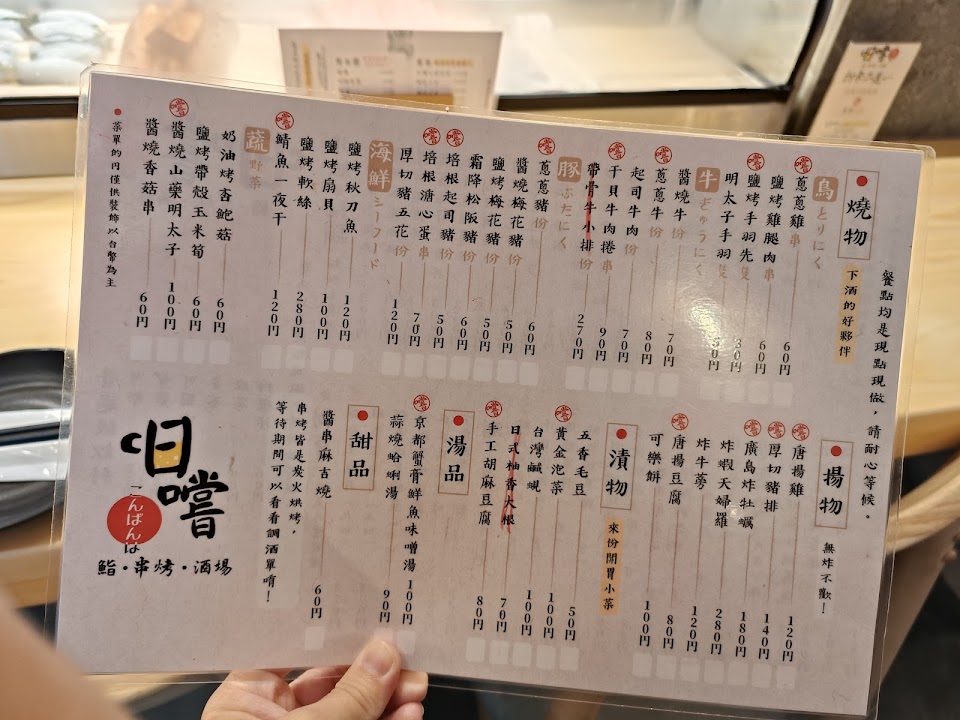 餐點均是現點現做，請耐心等候。
燒物
下酒的好夥伴
鳥とりにく
蔥蔥雞串 60円
鹽烤雞腿肉串 60円
鹽烤手羽先隻
明太子手羽隻
牛ぎゅうにく
醬燒牛份 70円
蔥蔥牛份 80円
起司牛肉份 70円
干貝牛肉捲串 90円
帶骨牛小排份 270円
豚ぶたにく
蔥蔥豬份 60円
醬燒梅花豬份 50円
鹽烤梅花豬份 50円
霜降松阪豬份 60円
培根起司豬份 50円
培根溏心蛋串 70円
厚切豬五花份 120円
海鮮シーフード
鹽烤秋刀魚 120円
鹽烤扇貝 100円
鹽烤軟絲 280円
鯖魚一夜干 120円
蔬野菜
奶油烤杏鮑菇 60円
鹽烤帶殼玉米筍 60円
醬燒山藥明太子 100円
醬燒香菇串 60円
菜單的円僅供裝飾以台幣為主
揚物
無炸不歡！
唐揚雞 120円
厚切豬排 140円
廣島炸牡蠣 180円
炸蝦天婦羅 280円
炸牛蒡 120円
唐揚豆腐 80円
可樂餅 100円
漬物
來份開胃小菜
五香毛豆 50円
黃金泡菜 100円
台灣鹹蜆 100円
日式柚香大根 70円
手工胡麻豆腐 80円
湯品
京都蟹膏鮮魚味噌湯 100円
蒜燒蛤蜊湯 90円
甜品
醬串麻吉燒 60円
串烤皆是炭火烘烤，
等待期間可以看看調酒單唷！
日嚐
こんばんは
鮨・串烤・酒場